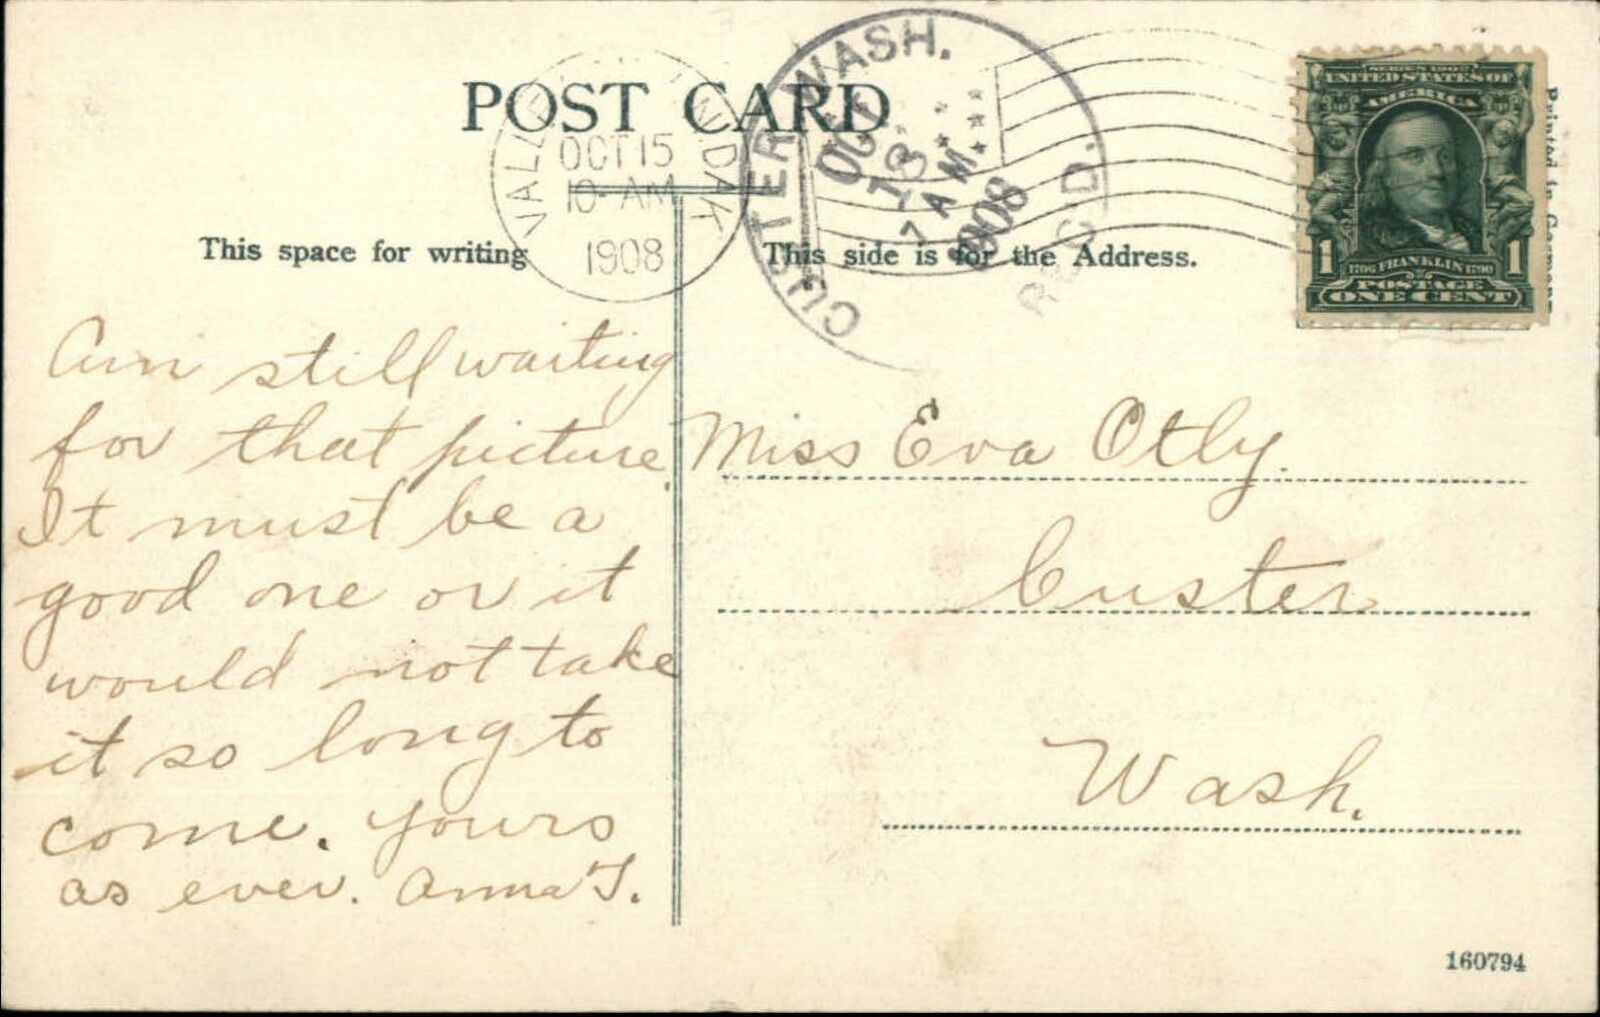 POST CARD
OCT 15
10- AM
1908
N. DAK.
CUSTER WASH.
OCT
18
7 AM
1908
REC'D.
SERIES 1902
UNITED STATES OF
AMERICA
1 1
1706 FRANKLIN 1790
POSTAGE
ONE CENT
Printed in Germany
This space for writing
This side is for the Address.
Am still waiting
for that picture.
It must be a
good one or it
would not take
it so long to
come. Yours
as ever. Anna T.
Miss Eva Otly.
Custer
Wash.
160794